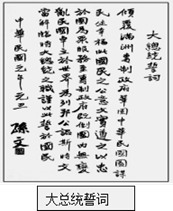 大總統誓詞
傾覆滿洲專制政府鞏固中華民國圖謀
民生幸福此國民之公意文實遵之以忠
於國為眾服務至專制政府既倒國內無變
亂民國卓立於世界為列邦公認斯時文
當解臨時大總統之職謹以此誓於國民
中華民國元年元旦 孫文
大总统誓词